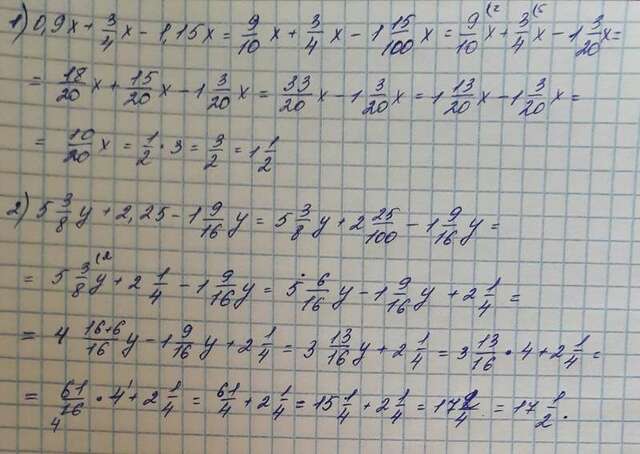 1) 0,9x + 3/4 x - 1,15x = 9/10 x + 3/4 x - 1 15/100 x = 9/10 (2 x + 3/4 (5 x - 1 3/20 x =
= 18/20 x + 15/20 x - 1 3/20 x = 33/20 x - 1 3/20 x = 1 13/20 x - 1 3/20 x =
= 10/20 x = 1/2 · 3 = 3/2 = 1 1/2
2) 5 3/8 y + 2,25 - 1 9/16 y = 5 3/8 y + 2 25/100 - 1 9/16 y =
= 5 3/8 (2 y + 2 1/4 - 1 9/16 y = 5 6/16 y - 1 9/16 y + 2 1/4 =
= 4 16+6/16 y - 1 9/16 y + 2 1/4 = 3 13/16 y + 2 1/4 = 3 13/16 · 4 + 2 1/4 =
= 61/16 4 · 4 1 + 2 1/4 = 61/4 + 2 1/4 = 15 1/4 + 2 1/4 = 17 2/4 = 17 1/2.